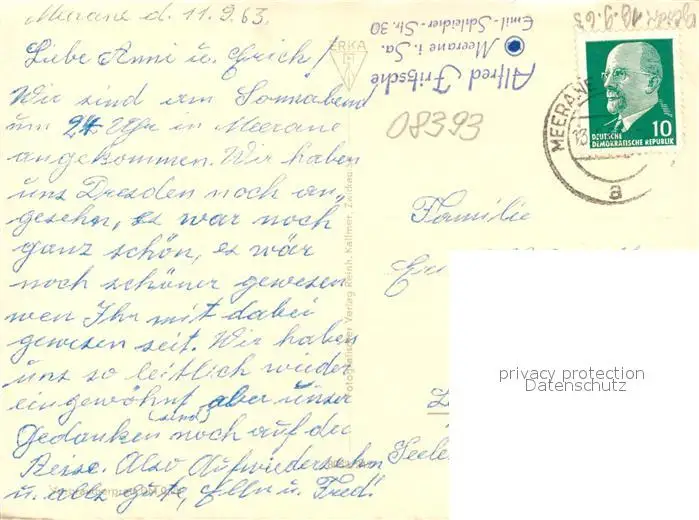 Meerane d. 11.9.63.
Liebe Anni u. Erich!
Wir sind am Sonnabend
um 24 Uhr in Meerane
angekommen. Wir haben
uns Dresden noch an-
gesehn, es war noch
ganz schön, es wär
noch schöner gewesen
wen Ihr mit dabei
gewesen seit. Wir haben
uns so leitlich wieder
eingewöhnt, aber unser
(sind)
Gedanken noch auf der
Reise. Also Aufwiedersehn
u. alles gute, Elln u. Fred!
ERKA
Fotografischer Verlag Reinh. Kallmer, Zwickau
Alfred Fritzsche
Meerane i. Sa.
Emil-Schleicher-Str. 30
08393
18.9.63
MEERANE
13
a
10
DEUTSCHE
DEMOKRATISCHE REPUBLIK
Familie
privacy protection
Datenschutz